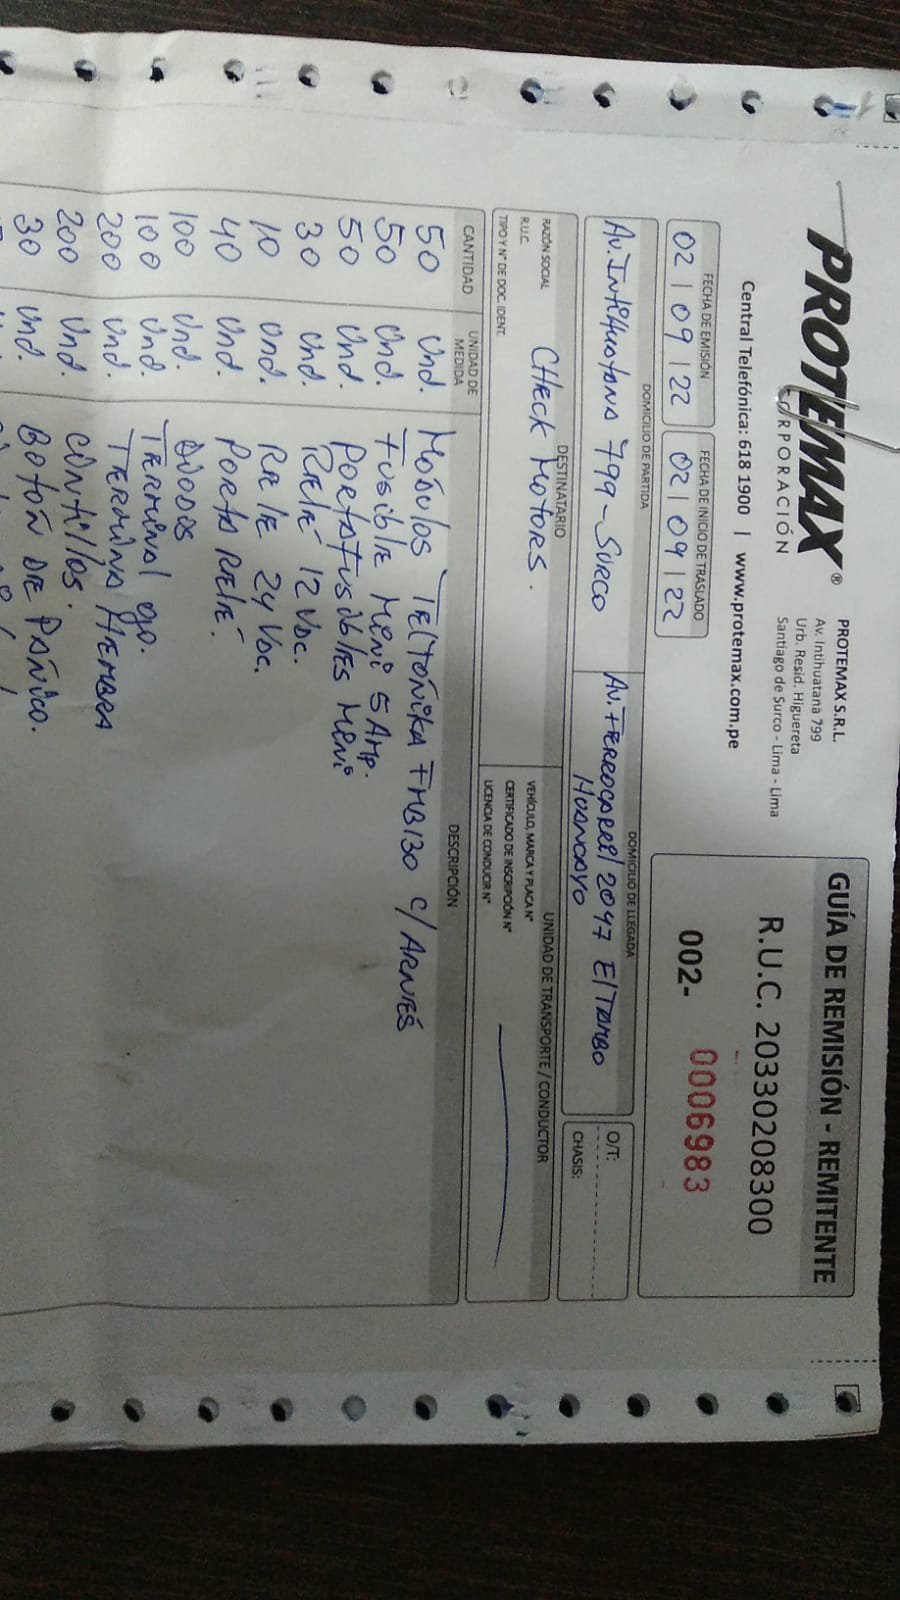 PROTEMAX®
CORPORACIÓN
Central Telefónica: 618 1900 | www.protemax.com.pe
PROTEMAX S.R.L.
Av. Intihuatana 799
Urb. Resid. Higuereta
Santiago de Surco - Lima - Lima
GUÍA DE REMISIÓN - REMITENTE
R.U.C. 20330208300
002- 0006983
FECHA DE EMISIÓN
02 | 09 | 22
FECHA DE INICIO DE TRASLADO
02 | 09 | 22
DOMICILIO DE PARTIDA
Av. Intihuatana 799 - Surco
DOMICILIO DE LLEGADA
Av. Ferrocarril 2047 El Tambo
Huancayo
O/T:
CHASIS:
DESTINATARIO
RAZÓN SOCIAL
CHeck Motors.
R.U.C.
TIPO Y N° DE DOC. IDENT.
UNIDAD DE TRANSPORTE / CONDUCTOR
VEHÍCULO, MARCA Y PLACA N°
CERTIFICADO DE INSCRIPCIÓN N°
LICENCIA DE CONDUCIR N°
CANTIDAD UNIDAD DE MEDIDA DESCRIPCIÓN
50 Und. Módulos Teltonika FMB130 c/Arnés
50 Und. Fusible Mini 5 Amp.
50 Und. Portafusibles Mini
30 Und. Relé 12 Vdc.
10 Und. Rele 24 Vdc.
40 Und. Porta Relé.
100 Und. Diodos
100 Und. Terminal ojo.
200 Und. Terminal Hembra
200 Und. Cintillos.
30 Und. Botón de Pánico.